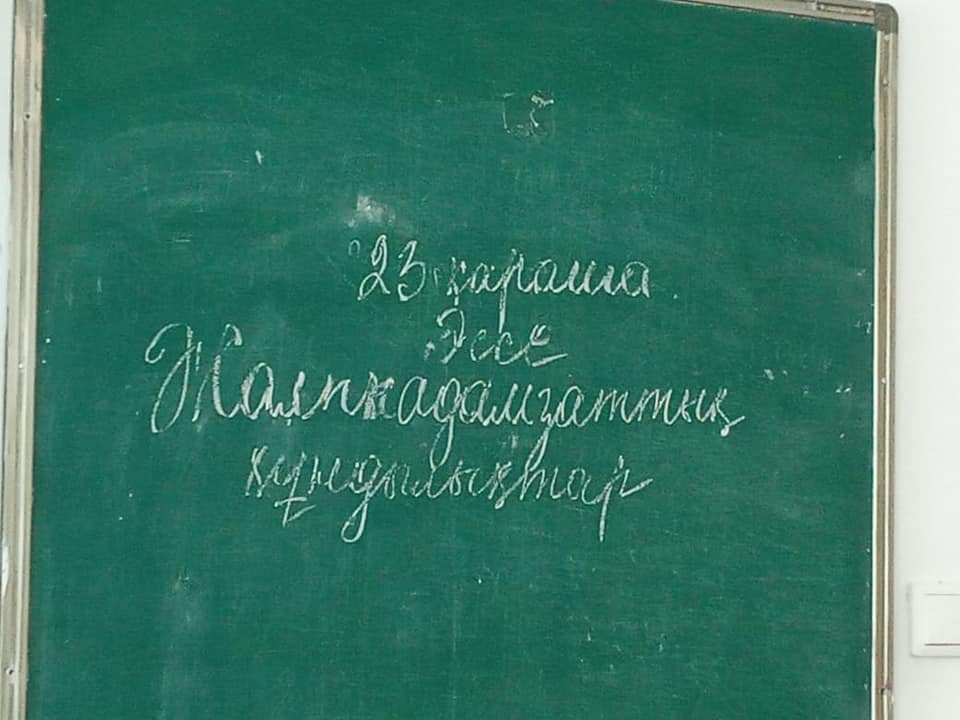 23 қараша
Эссе
Жалпыадамзаттық
құндылықтар